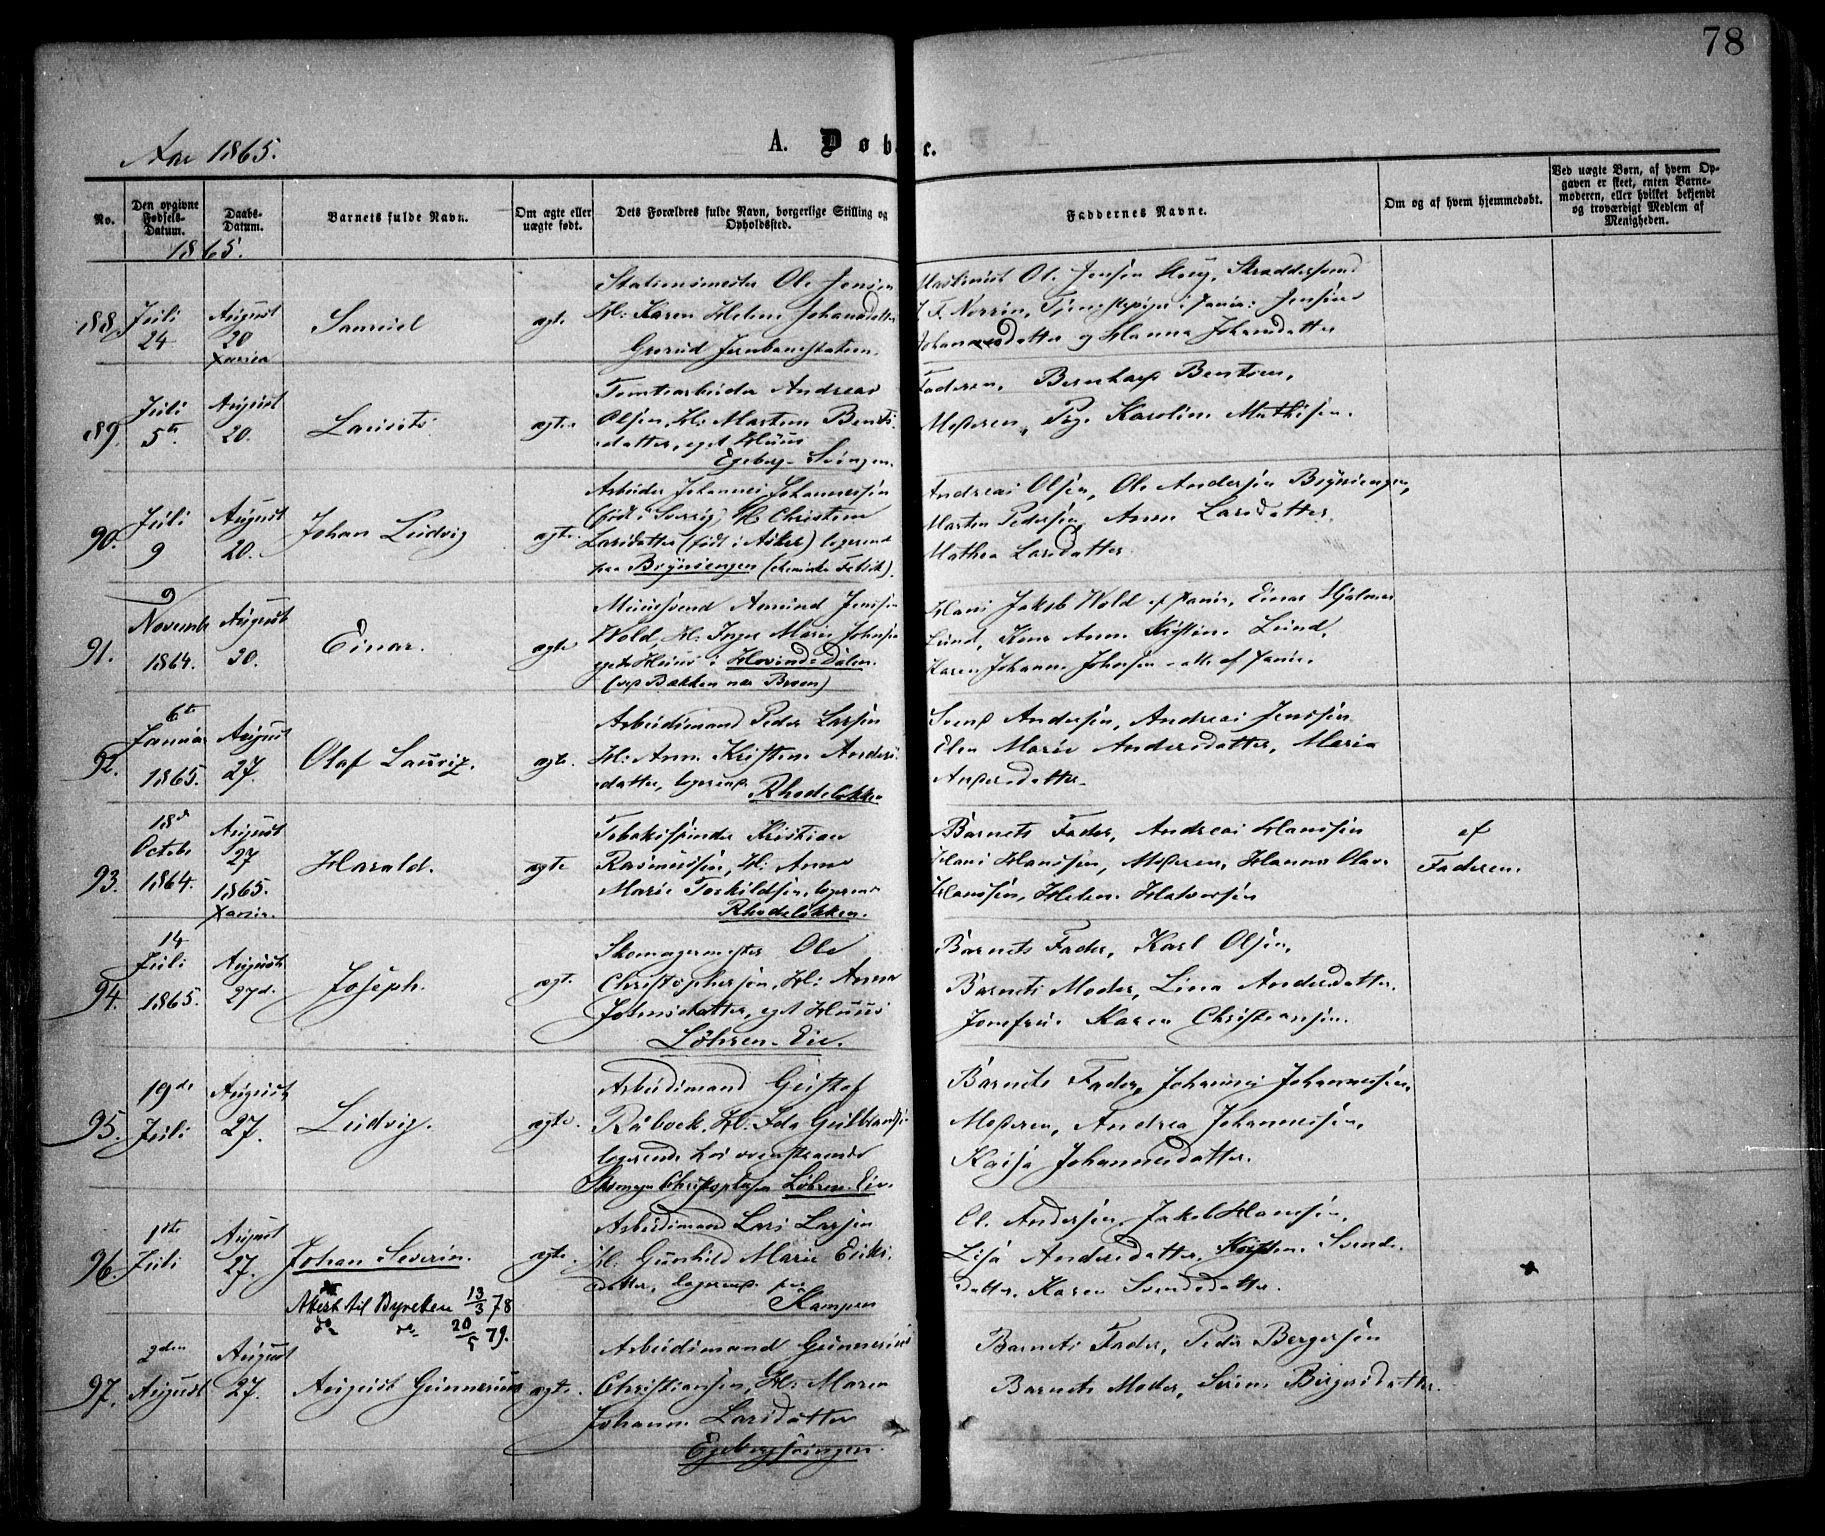 78
Aar 1865.
A. Døbte.
No.
Den opgivne Fødsels-Datum.
Daabs-Datum.
Barnets fulde Navn.
Om ægte eller uægte født.
Dets Forældres fulde Navn, borgerlige Stilling og Opholdssted.
Faddernes Navne.
Om og af hvem hjemmedøbt.
Ved uægte Børn, af hvem Opgaven er skeet, enten Barnemoderen, eller hvilket bekjendt og troværdigt Medlem af Menigheden.
1865.
88.
Juli 24
August 20
Xania
Samuel
ægte
Stationsmester Ole Jensen
H: Karen Helene Johansdatter
Grorud Jernbanestation.
Maskinist Ole Jensen Skræddersvend
Tjenestepige i Xania: Jensine
Johannesdatter og Hanna Johansdatter
89.
Juli 5te
August 20.
Lauritz
ægte
Tomtearbeider Andreas
Olsen, H: Marten Bents
datter, eget Huus
Egeberg-Svingen.
Faderen, Bernhard Bentsen,
Moderen, Pige Karoline Mathisen.
90.
Juli 9
August 20.
Johan Ludvig
ægte
Arbeider Johannes Johannessøn
(født i Sverrig) H: Christine
Larsdatter (født i Asker) logerende
paa Brynsengen (chemiske Fabrik).
Andreas Olsen, Ole Andersen Brynsengen,
Marten Pedersen, Anne Larsdatter,
Mathea Larsdatter.
91.
9 November 1864.
August 20.
Einar.
ægte
Muursvend Amund Jensen
Wold, H: Inger Marie Johnsen
eget Huus i Hovindsdalen.
(ved Bakken nær Broen)
Hans Jakob Wold af Xania, Einar Hjalmar
Lund, Anne Kristine Lund,
Karen Johanne Johnsen - alle af Xania.
92.
6te Januar 1865.
August 27.
Olaf Lauritz.
ægte.
Arbeidsmand Peder Larsen
H: Anne Kristine Anders-
datter, logerende Rhodeløkken
Svend Andersen, Andreas Jensen
Elen Marie Andersdatter, Maria
Andersdatter.
93.
18de October 1864.
August 27 1865.
Xania.
Harald.
ægte
Tobakspinder Kristian
Rasmussen, H: Anne
Marie Torkildsen, logerende
Rhodeløkken.
Barnets Fader, Andreas Hanssen
Hans Hanssen, Moderen, Hanna Olava
Hanssen, Helene Halvorsen
af Faderen.
94.
14 Juli 1865.
August 27de.
Joseph.
ægte.
Skomagermester Ole
Christophersen, H: Anna
Johnsdatter, eget Huus
Löhren-Eie.
Barnets Fader, Karl Olsen,
Barnets Moder, Lina Andersdatter.
Jomfru Karen Christiansen.
95.
19de Juli
August 27.
Ludvig.
ægte.
Arbeidsmand Gustaf
Råbock, H: Ida Gulbrands
logerende hos ovenstaaende
Skomager Christophersen Löhren-Eie.
Barnets Fader, Johannes Johannessen,
Moderen, Andrea Johannessen,
Kaisa Johannesdatter.
96.
1ste Juli
August 27.
Johan Severin.
Attest til Byretten 13/3 78
do do 20/5 79.
ægte.
Arbeidsmand Lars Larsen
H: Gunhild Marie Eriks-
datter, logerende paa
Kampen
Ole Andersen, Jakob Hanssen,
Lisa Andersdatter, Kristine Svends-
datter, Karen Svendsdatter.
97.
2den August
August 27.
August Gunnerius
ægte.
Arbeidsmand Gunnerius
Christiansen, H: Maren
Johanne Larsdatter
Egebergsvingen.
Barnets Fader, Peder Bergersen
Barnets Moder, Sirine Birgersdatter.